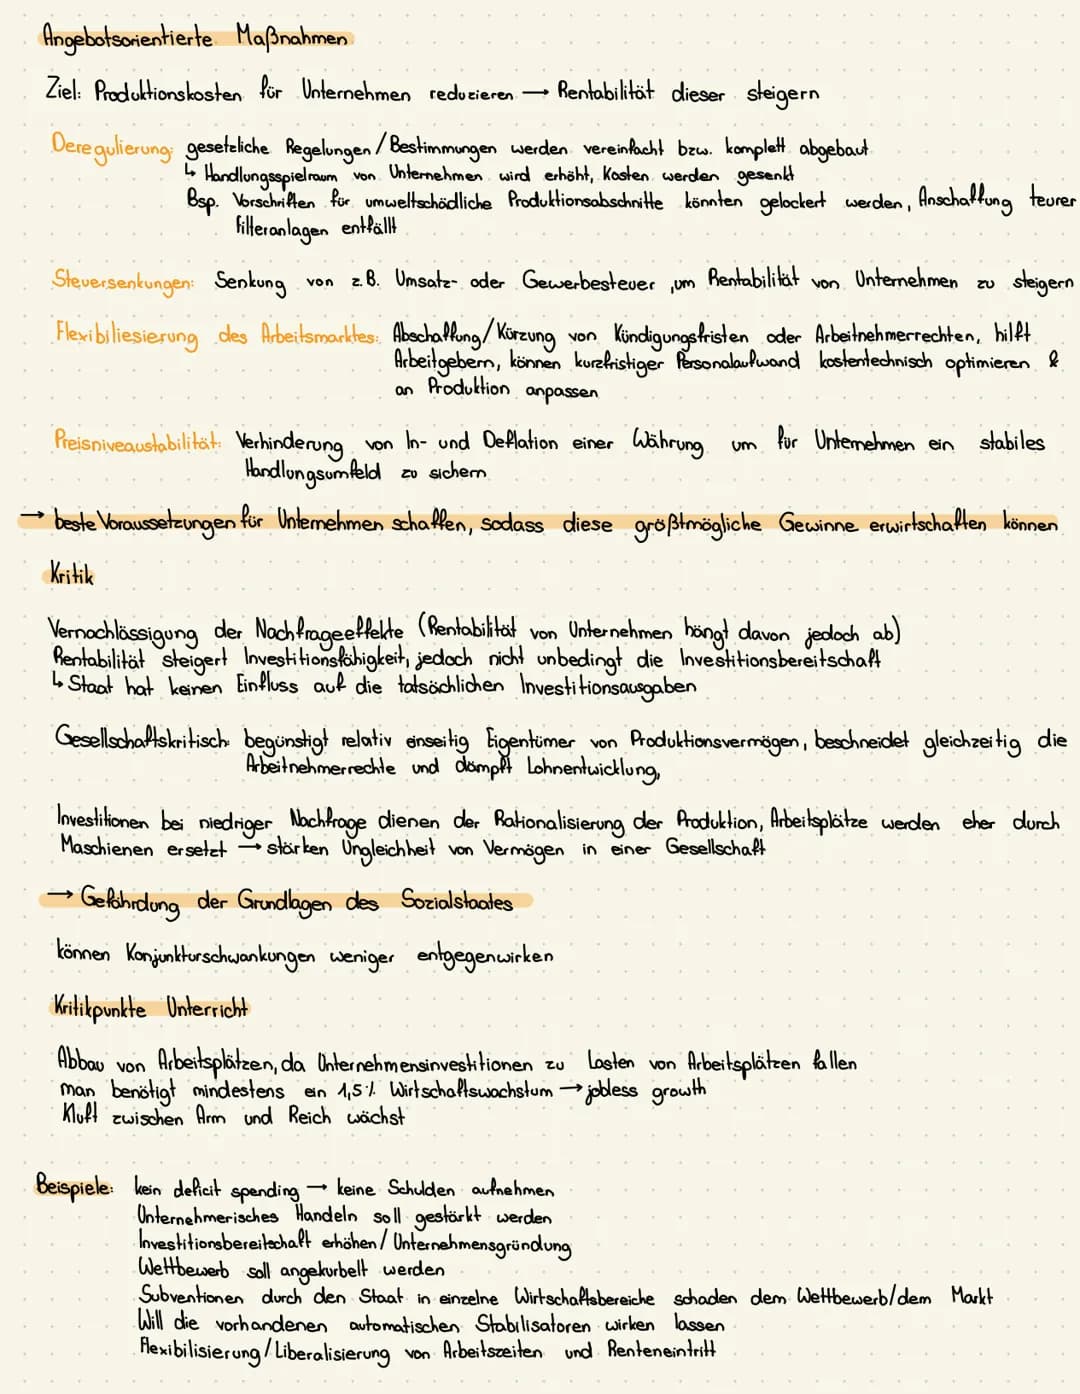 Angebotsorientierte Maßnahmen
Ziel: Produktionskosten für Unternehmen reduzieren → Rentabilität dieser steigern
Deregulierung: gesetzliche Regelungen/Bestimmungen werden vereinfacht bzw. komplett abgebaut
↳ Handlungsspielraum von Unternehmen wird erhöht, Kosten werden gesenkt
Bsp. Vorschriften für umweltschädliche Produktionsabschnitte könnten gelockert werden, Anschaffung teurer
Filteranlagen entfällt
Steuersenkungen: Senkung von z.B. Umsatz- oder Gewerbesteuer, um Rentabilität von Unternehmen zu steigern
Flexibiliesierung des Arbeitsmarktes: Abschaffung/Kürzung von Kündigungsfristen oder Arbeitnehmerrechten, hilft
Arbeitgebern, können kurzfristiger Personalaufwand kostentechnisch optimieren &
an Produktion anpassen
Preisniveaustabilität: Verhinderung von In- und Deflation einer Währung um für Unternehmen ein stabiles
Handlungsumfeld zu sichern
→ beste Voraussetzungen für Unternehmen schaffen, sodass diese größtmögliche Gewinne erwirtschaften können
Kritik
Vernachlässigung der Nachfrageeffekte (Rentabilität von Unternehmen hängt davon jedoch ab)
Rentabilität steigert Investitionsfähigkeit, jedoch nicht unbedingt die Investitionsbereitschaft
↳ Staat hat keinen Einfluss auf die tatsächlichen Investitionsausgaben
Gesellschaftskritisch: begünstigt relativ einseitig Eigentümer von Produktionsvermögen, beschneidet gleichzeitig die
Arbeitnehmerrechte und dämpft Lohnentwicklung,
Investitionen bei niedriger Nachfrage dienen der Rationalisierung der Produktion, Arbeitsplätze werden eher durch
Maschienen ersetzt → stärken Ungleichheit von Vermögen in einer Gesellschaft
→ Gefährdung der Grundlagen des Sozialstaates
können Konjunkturschwankungen weniger entgegenwirken
Kritikpunkte Unterricht
Abbau von Arbeitsplätzen, da Unternehmensinvestitionen zu Lasten von Arbeitsplätzen fallen
man benötigt mindestens ein 1,5% Wirtschaftswachstum → jobless growth
Kluft zwischen Arm und Reich wächst
Beispiele: kein deficit spending → keine Schulden aufnehmen
Unternehmerisches Handeln soll gestärkt werden
Investitionsbereitschaft erhöhen/Unternehmensgründung
Wettbewerb soll angekurbelt werden
Subventionen durch den Staat in einzelne Wirtschaftsbereiche schaden dem Wettbewerb/dem Markt
Will die vorhandenen automatischen Stabilisatoren wirken lassen
Flexibilisierung/Liberalisierung von Arbeitszeiten und Renteneintritt